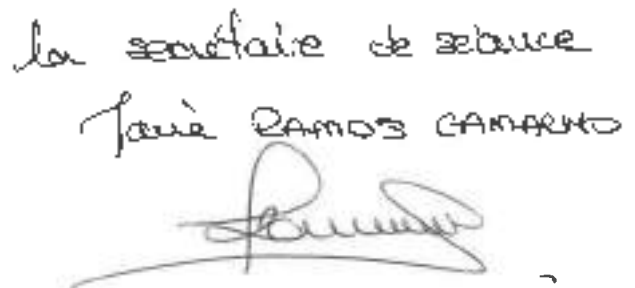 la secrétaire de séance
RAMOS CAMACHO